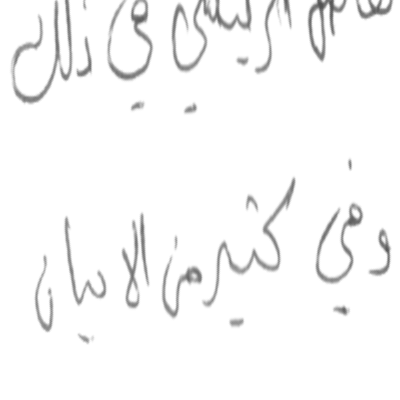 الرئيسي في ذلك
وفي كثير من الاحيان